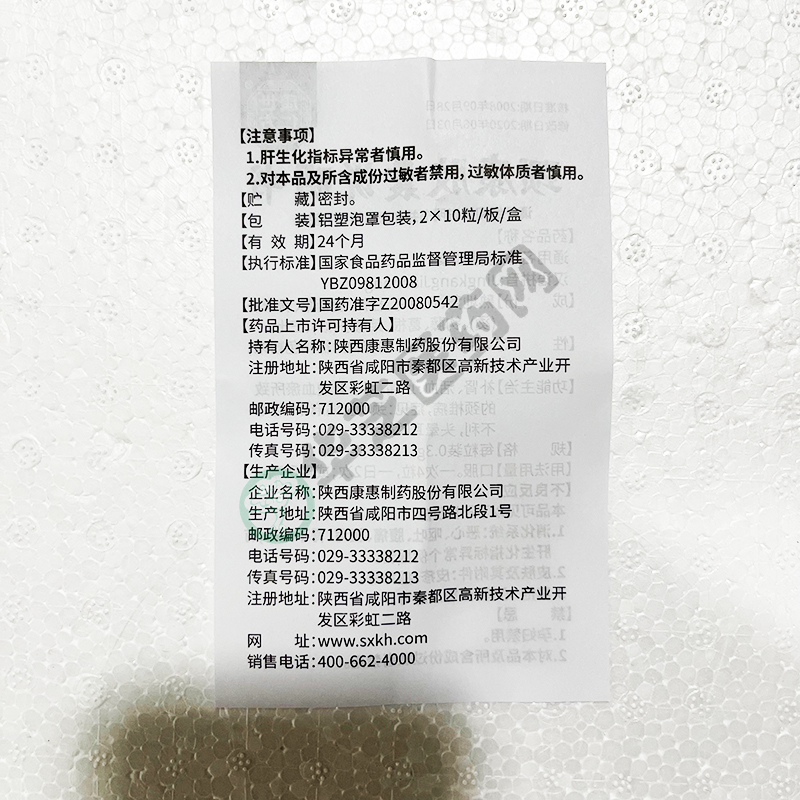 【注意事项】
1.肝生化指标异常者慎用。
2.对本品及所含成份过敏者禁用,过敏体质者慎用。
【贮 藏】密封。
【包 装】铝塑泡罩包装,2×10粒/板/盒
【有 效 期】24个月
【执行标准】国家食品药品监督管理局标准
YBZ09812008
【批准文号】国药准字Z20080542
【药品上市许可持有人】
持有人名称:陕西康惠制药股份有限公司
注册地址:陕西省咸阳市秦都区高新技术产业开
发区彩虹二路
邮政编码:712000
电话号码:029-33338212
传真号码:029-33338213
【生产企业】
企业名称:陕西康惠制药股份有限公司
生产地址:陕西省咸阳市四号路北段1号
邮政编码:712000
电话号码:029-33338212
传真号码:029-33338213
注册地址:陕西省咸阳市秦都区高新技术产业开
发区彩虹二路
网 址:www.sxkh.com
销售电话:400-662-4000